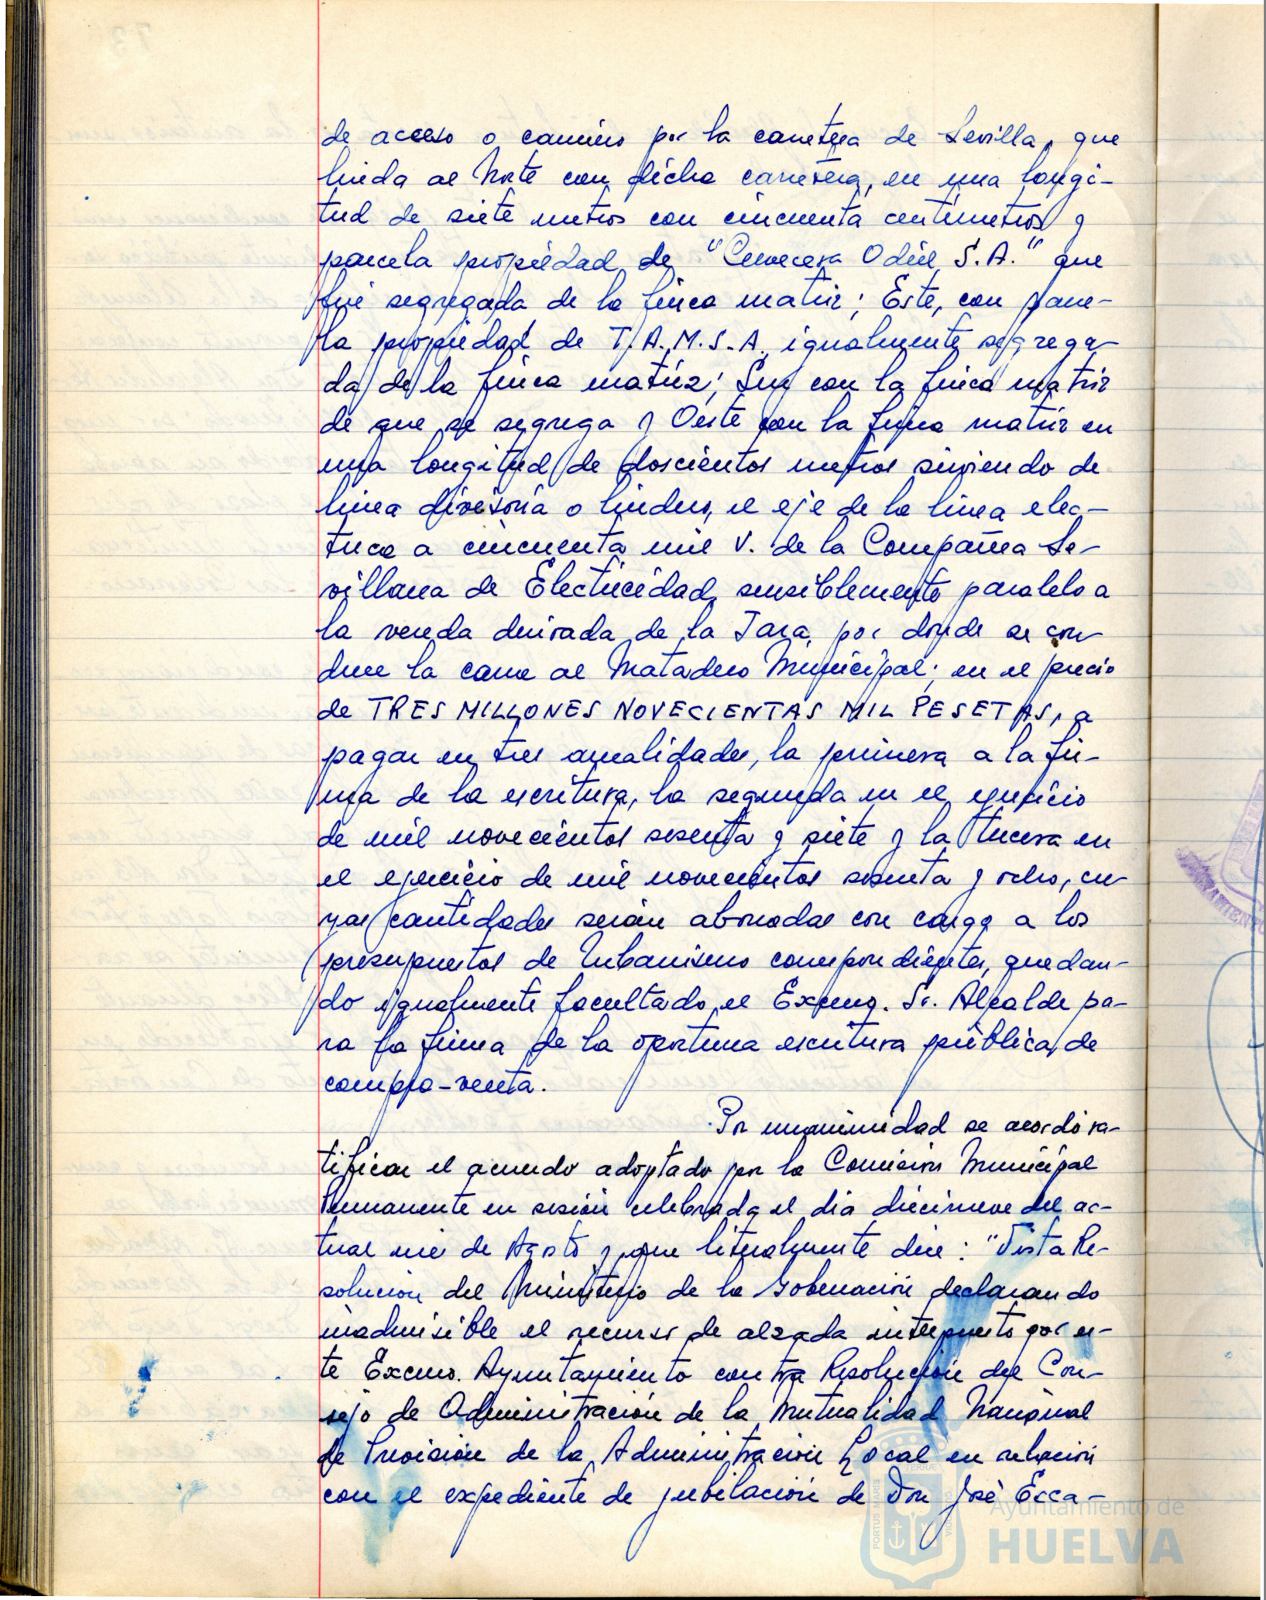 de acceso o camino por la carretera de Sevilla, que
linda al Norte con dicha carretera, en una longi-
tud de siete metros con cincuenta centimetros y
parcela propiedad de "Cervecera Odiel S.A." que
fué segregada de la finca matriz; Este, con parce-
la propiedad de T.A.M.S.A. igualmente segrega-
da de la finca matriz; Sur con la finca matriz
de que se segrega y Oeste con la finca matriz en
una longitud de doscientos metros sirviendo de
linea divisoria o lindero, el eje de la linea elec-
trica a cincuenta mil V. de la Compañia Se-
villana de Electricidad, sensiblemente paralelo a
la vereda denirada de la Jara, por donde se con-
duce la carne al Matadero Municipal; en el precio
de TRES MILLONES NOVECIENTAS MIL PESETAS, a
pagar en tres anualidades, la primera a la fir-
ma de la escritura, la segunda en el ejercicio
de mil novecientos sesenta y siete y la tercera en
el ejercicio de mil novecientos sesenta y ocho, cu-
yas cantidades serán abonadas con cargo a los
presupuestos de Urbanismo correspondientes, quedan-
do igualmente facultado el Excmo. Sr. Alcalde pa-
ra la firma de la oportuna escritura pública de
compra-venta.
Por unanimidad se acordó ra-
tificar el acuerdo adoptado por la Comisión Municipal
Permanente en sesión celebrada el dia diecinueve del ac-
tual mes de Agosto y que literalmente dice: "Vista Re-
solución del Ministerio de la Gobernación declarando
inadmisible el recurso de alzada interpuesto por es-
te Excmo. Ayuntamiento contra Resolución del Con-
sejo de Administración de la Mutualidad Nacional
de Previsión de la Administración Local en relación
con el expediente de jubilación de Don José Esca-
Ayuntamiento de
HUELVA